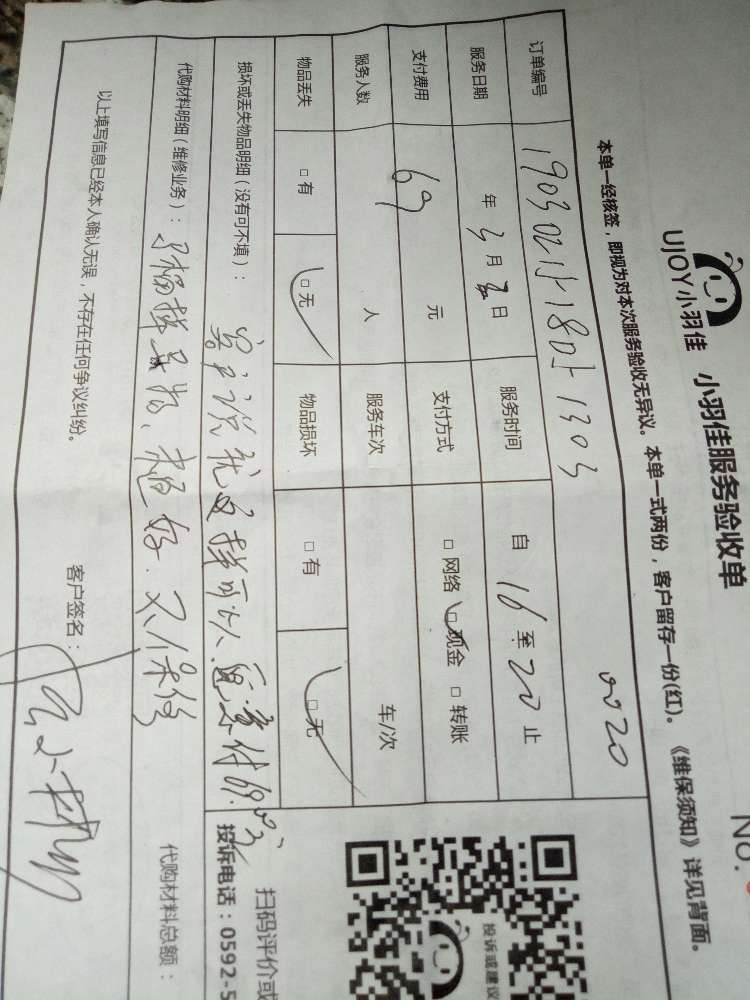 No.
UJOY小羽佳 小羽佳服务验收单
本单一经核签，即视为对本次服务验收无异议。本单一式两份，客户留存一份(红)。《维保须知》详见背面。
订单编号 0020
服务日期 年 3 月 日 服务时间 自 16 至 20 止
支付费用 69 元 支付方式 □ 网络 □ 现金 □ 转账
服务人数 人 服务车次 车/次
物品丢失 □ 有 □ 无 物品损坏 □ 有 □ 无
损坏或丢失物品明细（没有可不填）： 客户说 可以
代购材料明细（维修业务）： 好.不保修
代购材料总额：
以上填写信息已经本人确认无误，不存在任何争议纠纷。 客户签名：
投诉或建议
扫码评价或
投诉电话：0592-5